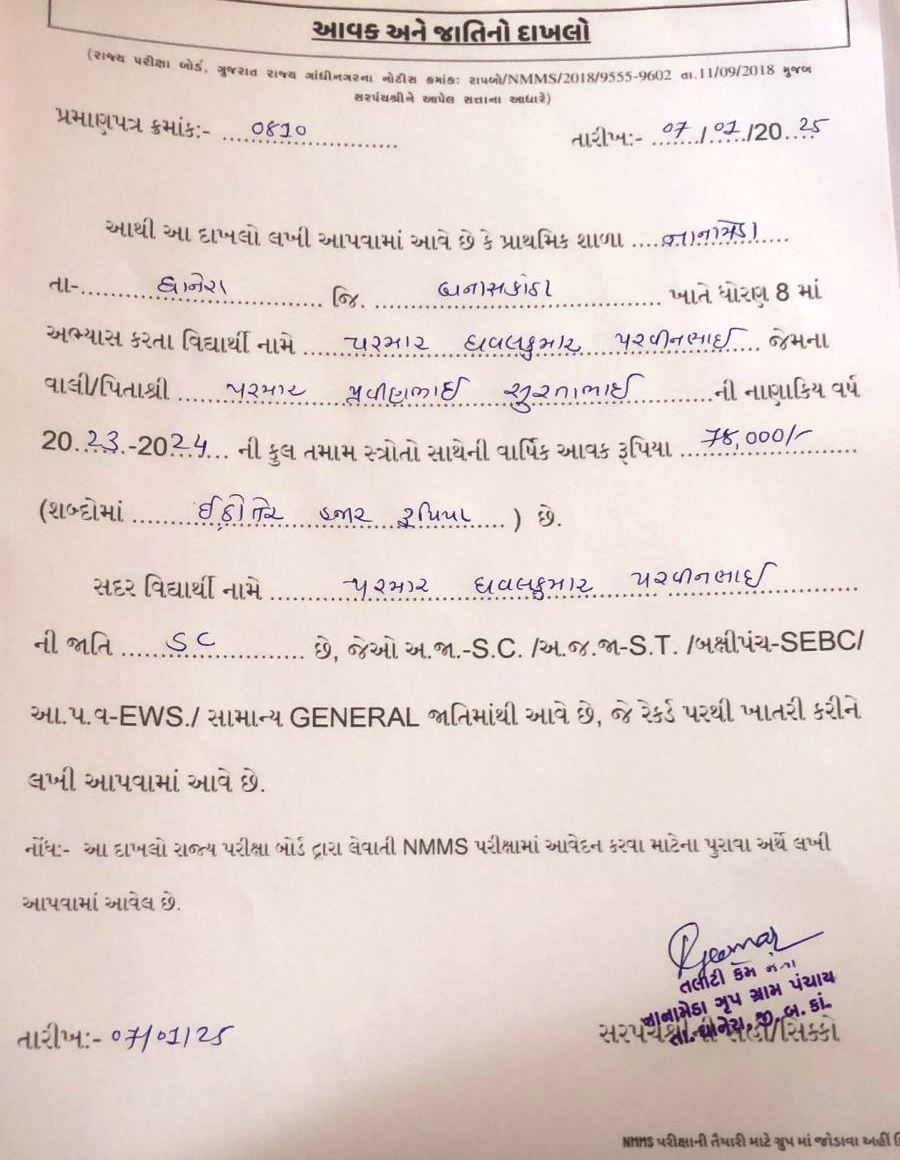 આવક અને જાતિનો દાખલો
(રાજ્ય પરીક્ષા બોર્ડ, ગુજરાત રાજ્ય ગાંધીનગરના નોટીસ ક્રમાંક: રાપબો/NMMS/2018/9555-9602 તા.11/09/2018 મુજબ
સરપંચશ્રીને આપેલ સત્તાના આધારે)
પ્રમાણપત્ર ક્રમાંક:- ....0810.................... તારીખ:- ..07../.01../20...25
આથી આ દાખલો લખી આપવામાં આવે છે કે પ્રાથમિક શાળા ....નાનામેડા....
તા-..........ધાનેરા............. જિ. ........બનાસકાંઠા............. ખાતે ધોરણ 8 માં
અભ્યાસ કરતા વિદ્યાર્થી નામે .....પરમાર ધવલકુમાર પરવીનભાઈ.... જેમના
વાલી/પિતાશ્રી ......પરમાર પ્રવીણભાઈ સુરતાભાઈ.........ની નાણાકિય વર્ષ
20..23.-2024... ની કુલ તમામ સ્ત્રોતો સાથેની વાર્ષિક આવક રૂપિયા ...78,000/-......
(શબ્દોમાં ........ઈઠોતેર હજાર રૂપિયા.....) છે.
સદર વિદ્યાર્થી નામે .........પરમાર ધવલકુમાર પરવીનભાઈ..........
ની જાતિ ......SC........... છે, જેઓ અ.જા.-S.C. /અ.જ.જા-S.T. /બક્ષીપંચ-SEBC/
આ.પ.વ-EWS./ સામાન્ય GENERAL જાતિમાંથી આવે છે, જે રેકર્ડ પરથી ખાતરી કરીને
લખી આપવામાં આવે છે.
નોંધ:- આ દાખલો રાજ્ય પરીક્ષા બોર્ડ દ્વારા લેવાની NMMS પરીક્ષામાં આવેદન કરવા માટેના પુરાવા અર્થે લખી
આપવામાં આવેલ છે.
તલાટી કમ
નાનામેડા ગૃપ ગ્રામ પંચાય
તા. ધાનેરા, જી. બ. કાં.
તારીખ:- 07/01/25 સરપંચશ્રીની સહી/સિક્કો
NMMS પરીક્ષાની તૈયારી માટે ગ્રુપ માં જોડાવા અહીં